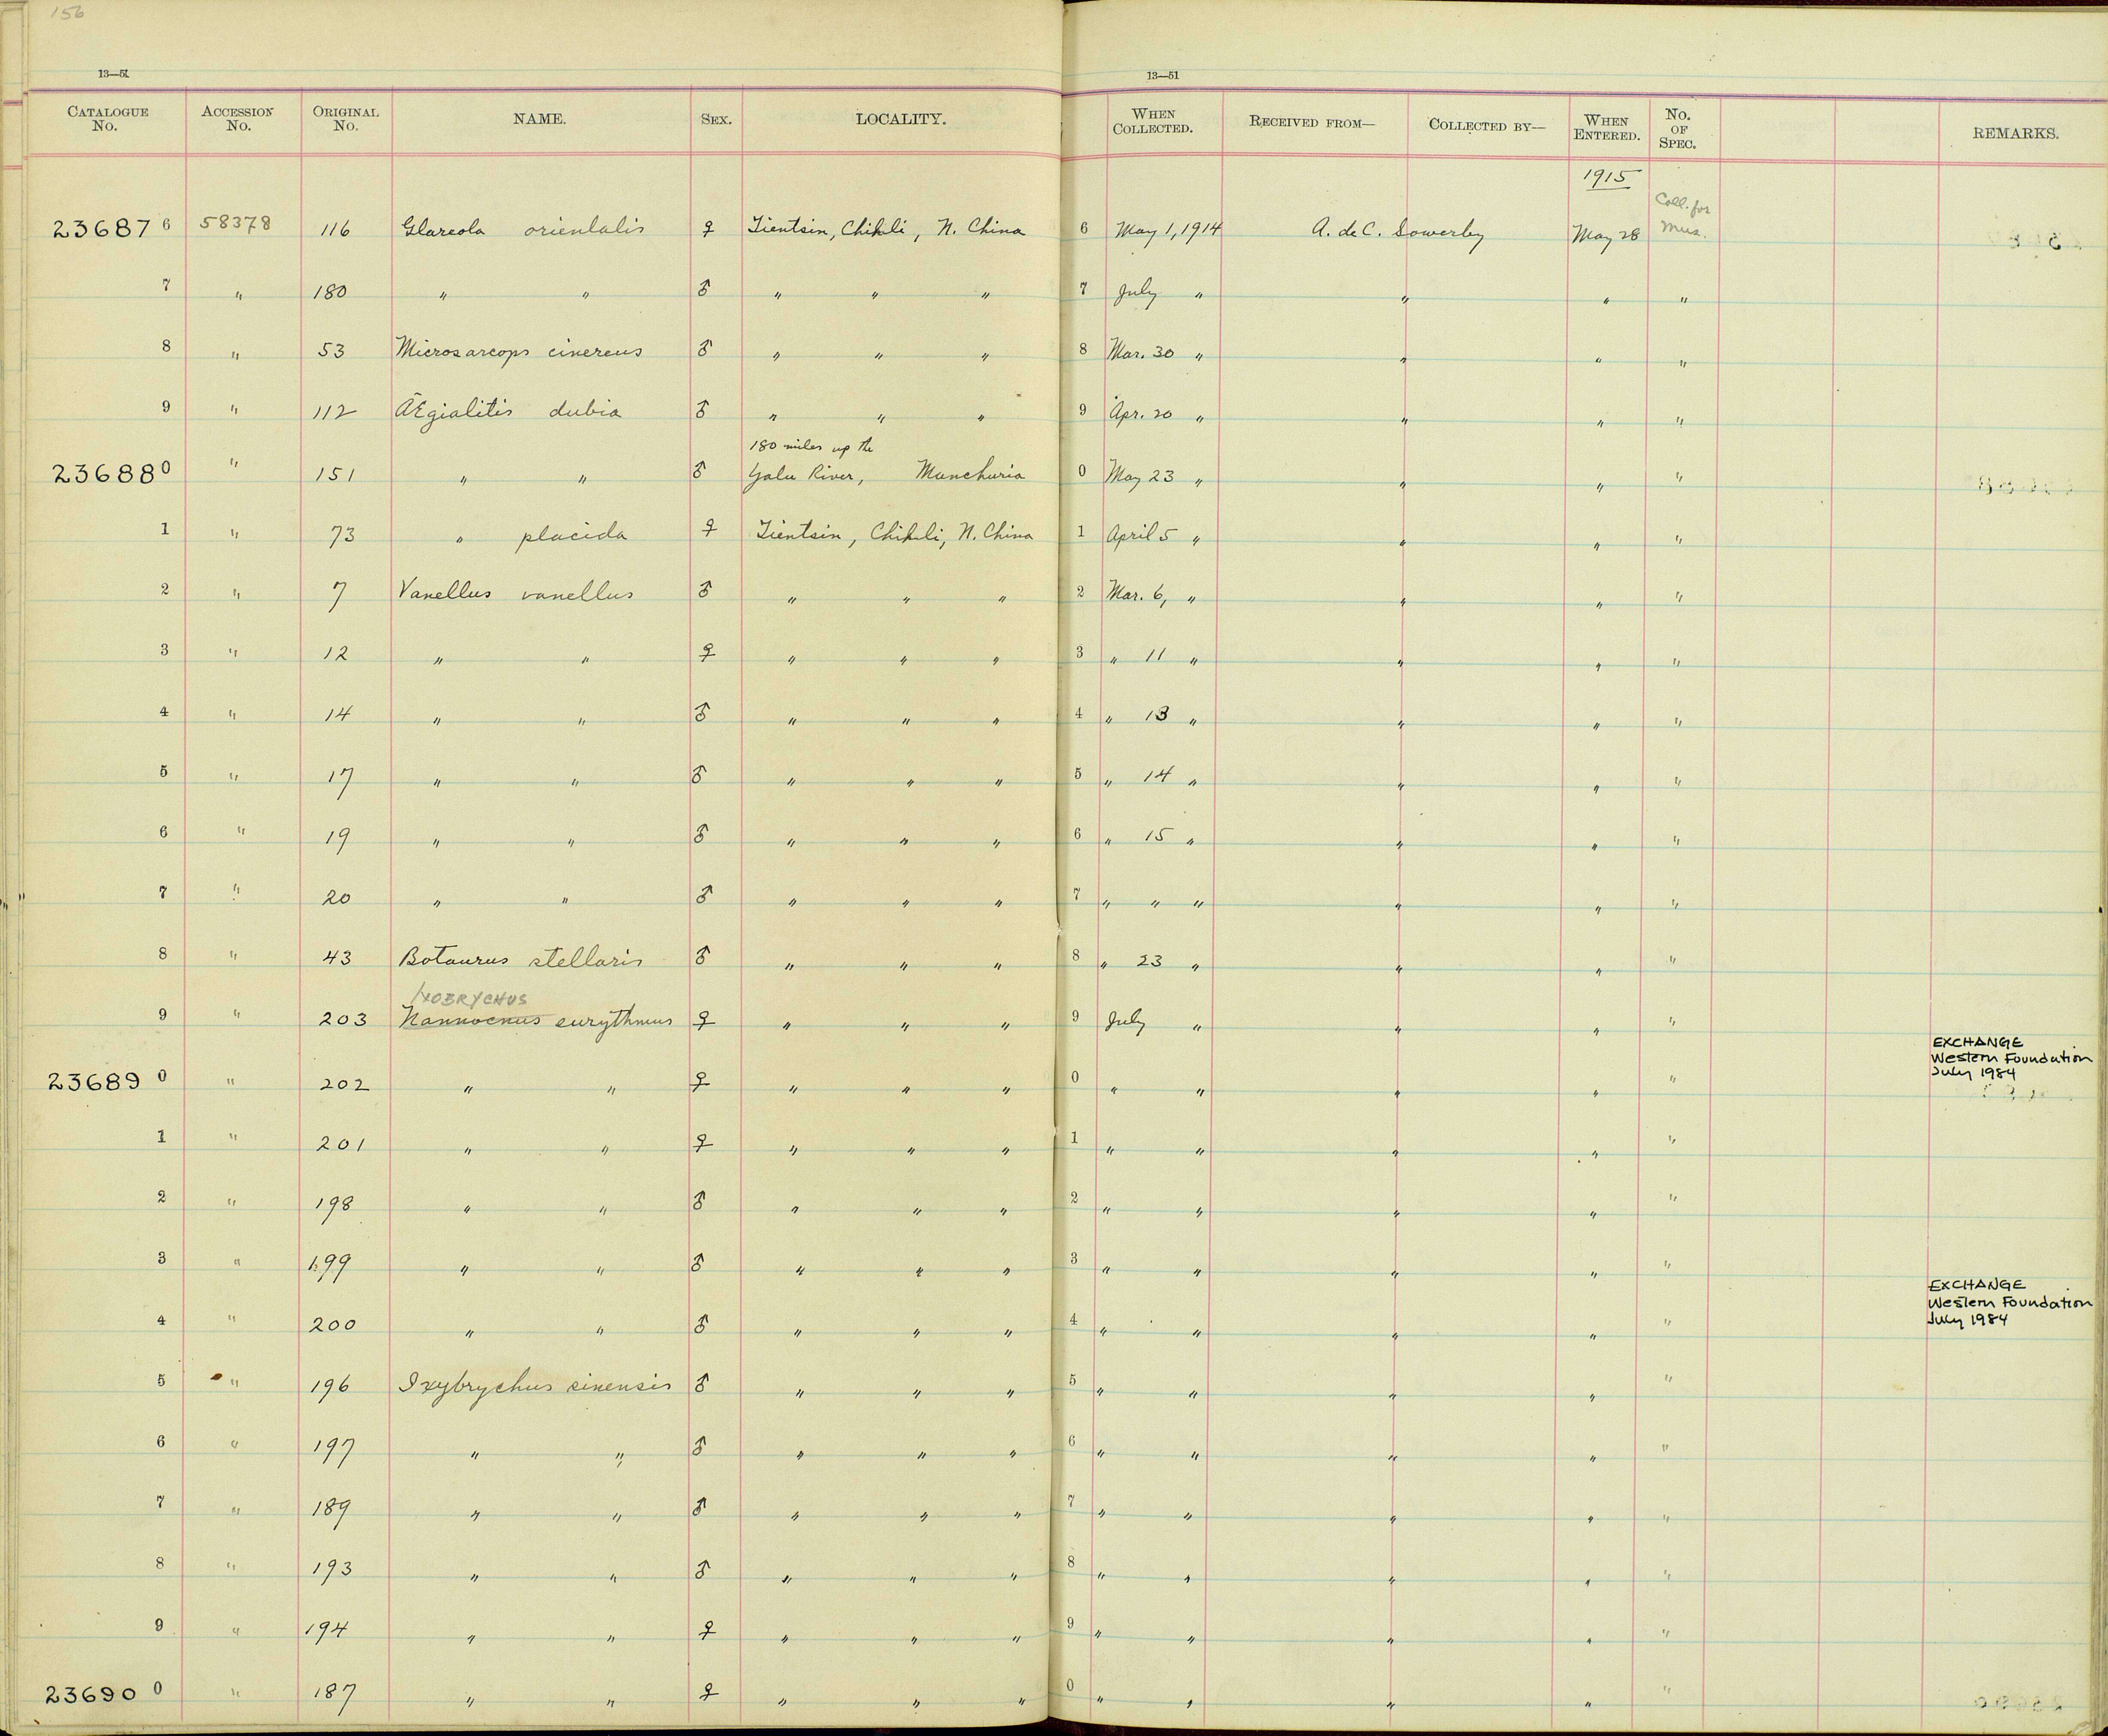 156
13—51 13—51
CATALOGUE No. ACCESSION No. ORIGINAL No. NAME. SEX. LOCALITY. WHEN COLLECTED. RECEIVED FROM— COLLECTED BY— WHEN ENTERED. No. OF SPEC. REMARKS.
1915
236876 58378 116 Glareola orientalis ♀ Tientsin, Chihli, N. China 6 May 1, 1914 A. de C. Sowerby May 28 Coll. for Mus.
7 " 180 " " ♂ " " " 7 July " " " "
8 " 53 Microsarcops cinereus ♂ " " " 8 Mar. 30 " " " "
9 " 112 Ægialitis dubia ♂ " " " 9 Apr. 20 " " " "
180 miles up the
236880 " 151 " " ♂ Yalu River, Manchuria 0 May 23 " " " "
1 " 73 " placida ♀ Tientsin, Chihli, N. China 1 April 5 " " " "
2 " 7 Vanellus vanellus ♂ " " " 2 Mar. 6, " " " "
3 " 12 " " ♀ " " " 3 " 11 " " " "
4 " 14 " " ♂ " " " 4 " 13 " " " "
5 " 17 " " ♂ " " " 5 " 14 " " " "
6 " 19 " " ♂ " " " 6 " 15 " " " "
7 " 20 " " ♂ " " " 7 " " " " " "
8 " 43 Botaurus stellaris ♂ " " " 8 " 23 " " " "
IXOBRYCHUS
9 " 203 Nannocnus eurythmus ♀ " " " 9 July " " " "
236890 " 202 " " ♀ " " " 0 " " " " " EXCHANGE
Western Foundation
July 1984
1 " 201 " " ♀ " " " 1 " " " " "
2 " 198 " " ♂ " " " 2 " " " " "
3 " 199 " " ♂ " " " 3 " " " " "
4 " 200 " " ♂ " " " 4 " " " " " EXCHANGE
Western Foundation
July 1984
5 " 196 Ixybrychus sinensis ♂ " " " 5 " " " " "
6 " 197 " " ♂ " " " 6 " " " " "
7 " 189 " " ♂ " " " 7 " " " " "
8 " 193 " " ♂ " " " 8 " " " " "
9 " 194 " " ♀ " " " 9 " " " " "
236900 " 187 " " ♀ " " " 0 " " " " "